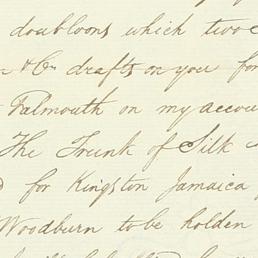 doubloons which two
& Co drafts on you for
Falmouth on my accou
The Trunk of Silk
for Kingston Jamaica
Woodburn to be holden